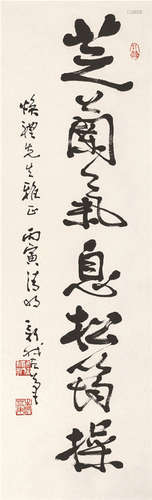 芝蘭氣息松筠操
煥禮先生雅正 丙寅清明